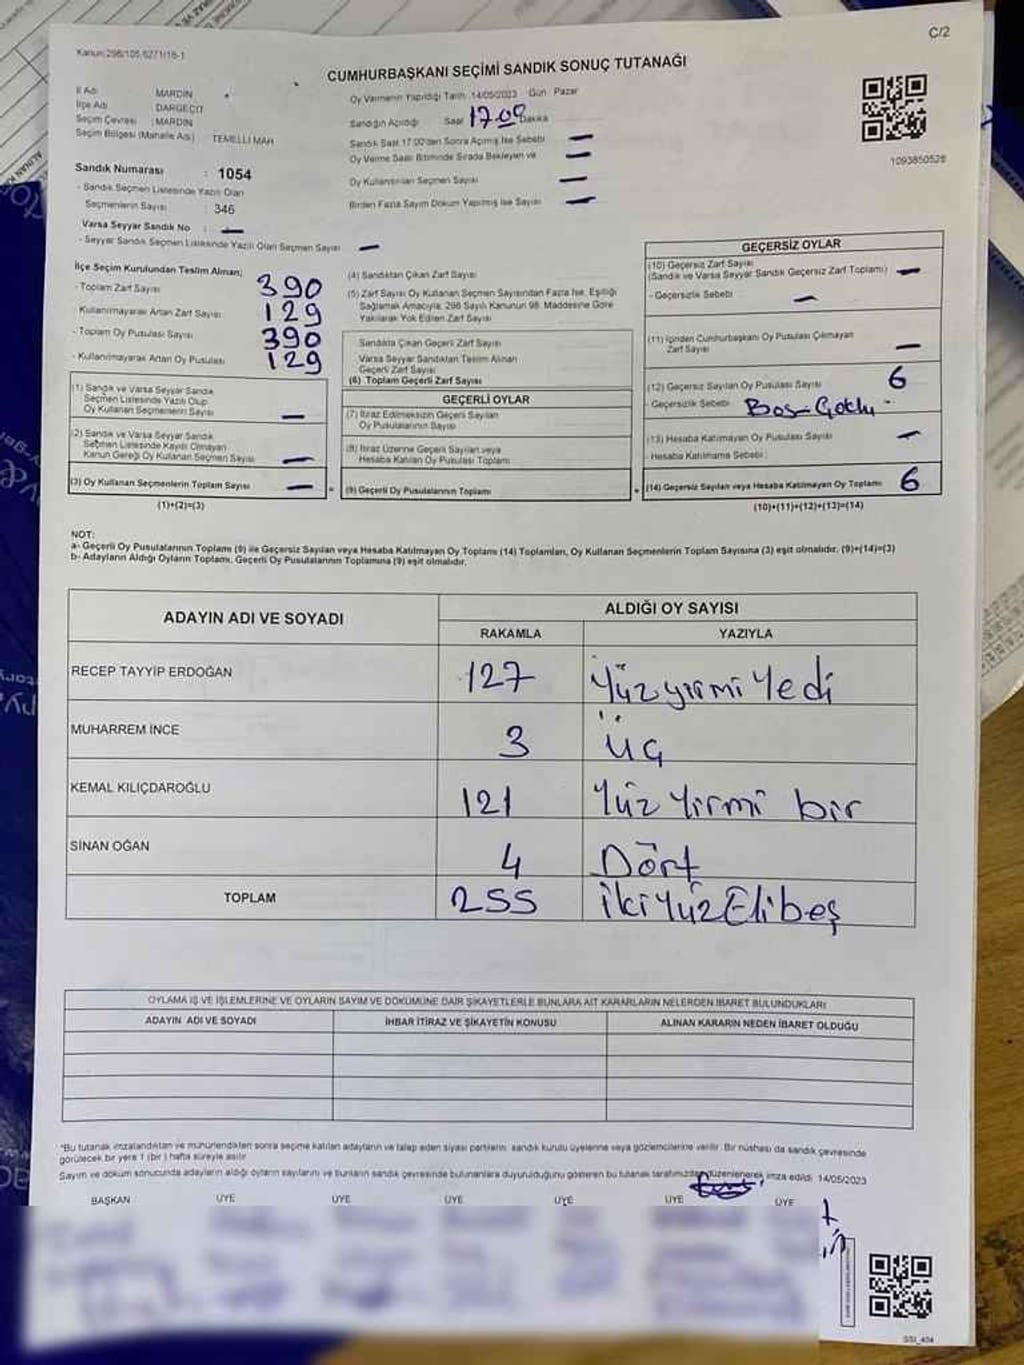 C/2
Kanun:298/105,6271/16-1
CUMHURBAŞKANI SEÇİMİ SANDIK SONUÇ TUTANAĞI
İl Adı MARDİN
İlçe Adı DARGEÇİT
Seçim Çevresi : MARDİN
Seçim Bölgesi (Mahalle Adı) : TEMELLİ MAH
Sandık Numarası : 1054
- Sandık Seçmen Listesinde Yazılı Olan
Seçmenlerin Sayısı : 346
Varsa Seyyar Sandık No : —
- Seyyar Sandık Seçmen Listesinde Yazılı Olan Seçmen Sayısı —
Oy Vermenin Yapıldığı Tarih :14/05/2023 Gün : Pazar
Sandığın Açıldığı Saat 17.00 Dakika
Sandık Saat 17:00'den Sonra Açılmış İse Sebebi —
Oy Verme Saati Bitiminde Sırada Bekleyen ve —
Oy Kullandırılan Seçmen Sayısı —
Birden Fazla Sayım Döküm Yapılmış İse Sayısı —
1093850528
İlçe Seçim Kurulundan Teslim Alınan;
- Toplam Zarf Sayısı 390
- Kullanılmayarak Artan Zarf Sayısı 129
- Toplam Oy Pusulası Sayısı 390
- Kullanılmayarak Artan Oy Pusulası 129
(1) Sandık ve Varsa Seyyar Sandık
Seçmen Listesinde Yazılı Olup
Oy Kullanan Seçmenlerin Sayısı —
(2) Sandık ve Varsa Seyyar Sandık
Seçmen Listesinde Kayıtlı Olmayan
Kanun Gereği Oy Kullanan Seçmen Sayısı —
(3) Oy Kullanan Seçmenlerin Toplam Sayısı —
(1)+(2)=(3)
(4) Sandıktan Çıkan Zarf Sayısı
(5) Zarf Sayısı Oy Kullanan Seçmen Sayısından Fazla İse, Eşitliği
Sağlamak Amacıyla, 298 Sayılı Kanunun 98. Maddesine Göre
Yakılarak Yok Edilen Zarf Sayısı
Sandıkta Çıkan Geçerli Zarf Sayısı
Varsa Seyyar Sandıktan Teslim Alınan
Geçerli Zarf Sayısı
(6) Toplam Geçerli Zarf Sayısı
GEÇERLİ OYLAR
(7) İtiraz Edilmeksizin Geçerli Sayılan
Oy Pusulalarının Sayısı
(8) İtiraz Üzerine Geçerli Sayılan veya
Hesaba Katılan Oy Pusulası Toplamı
(9) Geçerli Oy Pusulalarının Toplamı
GEÇERSİZ OYLAR
(10) Geçersiz Zarf Sayısı
(Sandık ve Varsa Seyyar Sandık Geçersiz Zarf Toplamı) —
- Geçersizlik Sebebi —
(11) İçinden Cumhurbaşkanı Oy Pusulası Çıkmayan
Zarf Sayısı —
(12) Geçersiz Sayılan Oy Pusulası Sayısı 6
- Geçersizlik Sebebi :
(13) Hesaba Katılmayan Oy Pusulası Sayısı —
- Hesaba Katılmama Sebebi :
(14) Geçersiz Sayılan veya Hesaba Katılmayan Oy Toplamı 6
(10)+(11)+(12)+(13)=(14)
NOT:
a- Geçerli Oy Pusulalarının Toplamı (9) ile Geçersiz Sayılan veya Hesaba Katılmayan Oy Toplamı (14) Toplamları, Oy Kullanan Seçmenlerin Toplam Sayısına (3) eşit olmalıdır. (9)+(14)=(3)
b- Adayların Aldığı Oyların Toplamı, Geçerli Oy Pusulalarının Toplamına (9) eşit olmalıdır.
ADAYIN ADI VE SOYADI ALDIĞI OY SAYISI
RAKAMLA YAZIYLA
RECEP TAYYİP ERDOĞAN 127 Yüz yirmi Yedi
MUHARREM İNCE 3 Üç
KEMAL KILIÇDAROĞLU 121 Yüz Yirmi bir
SİNAN OĞAN 4 Dört
TOPLAM 255 İki Yüz Elibeş
OYLAMA İŞ VE İŞLEMLERİNE VE OYLARIN SAYIM VE DÖKÜMÜNE DAİR ŞİKAYETLERLE BUNLARA AİT KARARLARIN NELERDEN İBARET BULUNDUKLARI
ADAYIN ADI VE SOYADI İHBAR İTİRAZ VE ŞİKAYETİN KONUSU ALINAN KARARIN NEDEN İBARET OLDUĞU
*Bu tutanak imzalandıktan ve mühürlendikten sonra seçime katılan adayların ve talep eden siyasi partilerin, sandık kurulu üyelerine veya gözlemcilerine verilir. Bir nüshası da sandık çevresinde
görülecek bir yere 1 (bir) hafta süreyle asılır.
Sayım ve döküm sonucunda adayların aldığı oyların sayılarını ve bunların sandık çevresinde bulunanlara duyurulduğunu gösteren bu tutanak tarafımızdan düzenlenerek imza edildi. 14/05/2023
BAŞKAN ÜYE ÜYE ÜYE ÜYE ÜYE ÜYE
SSI_404